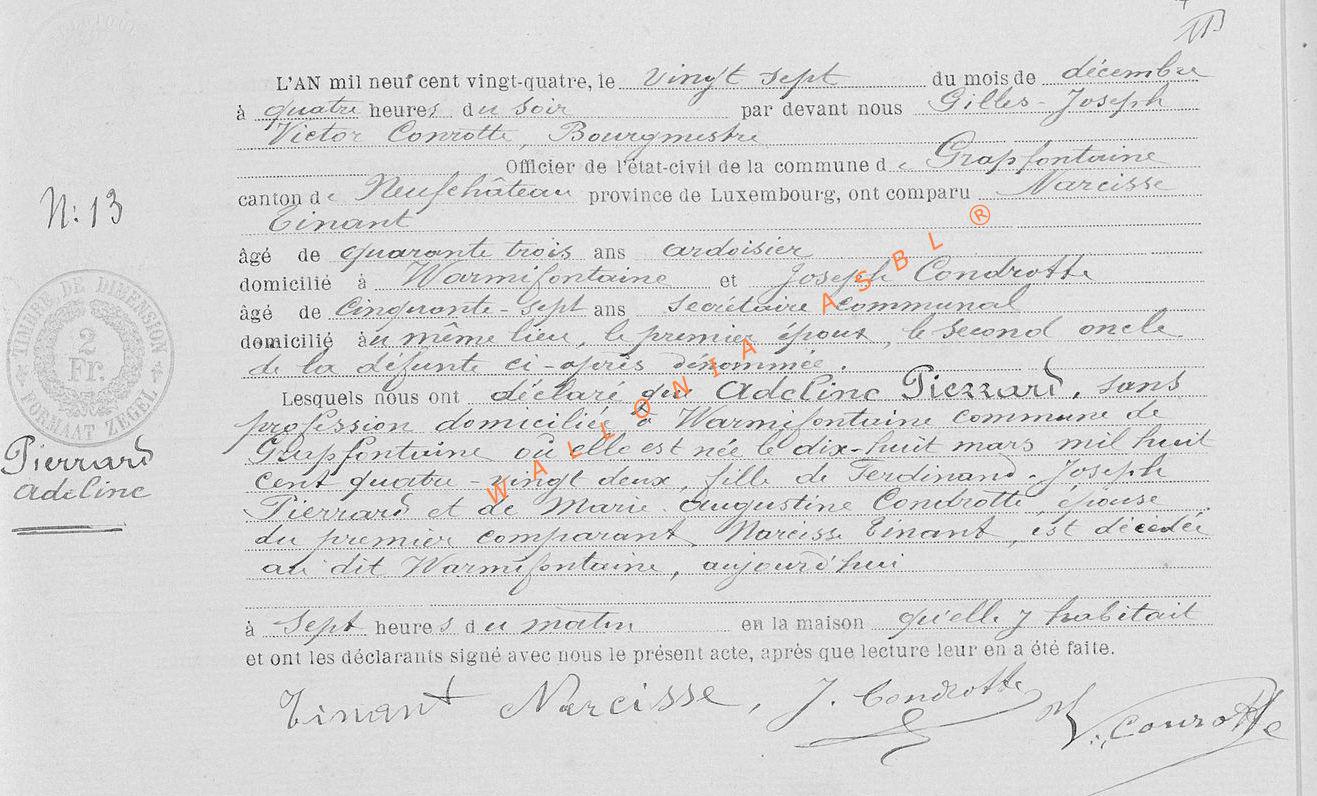 L'AN mil neuf cent vingt-quatre, le vingt sept du mois de décembre
à quatre heures du soir par devant nous Gilles-Joseph
Victor Conrotte, Bourgmestre
Officier de l'état-civil de la commune de Grapfontaine
canton de Neufchâteau province de Luxembourg, ont comparu Narcisse
Tinant
âgé de quarante trois ans ardoisier
domicilié à Warmifontaine et Joseph Condrotte
âgé de Cinquante-sept ans secrétaire communal
domicilié au même lieu, le premier époux, le second oncle
de la défunte ci-après dénommée.
Lesquels nous ont déclaré que Adeline Pierrard, sans
profession domiciliée à Warmifontaine commune de
Grapfontaine où elle est née le dix-huit mars mil huit
cent quatre-vingt deux, fille de Ferdinand-Joseph
Pierrard et de Marie-Augustine Condrotte, épouse
du premier comparant, Narcisse Tinant, est décédée
au dit Warmifontaine, aujourd'hui
à sept heures du matin en la maison qu'elle y habitait
et ont les déclarants signé avec nous le présent acte, après que lecture leur en a été faite.
Tinant Narcisse, J. Condrotte V. Conrotte
N: 13
TIMBRE DE DIMENSION
2
Fr.
FORMAAT ZEGEL
Pierrard
Adeline
WALLONIA ASBL ®